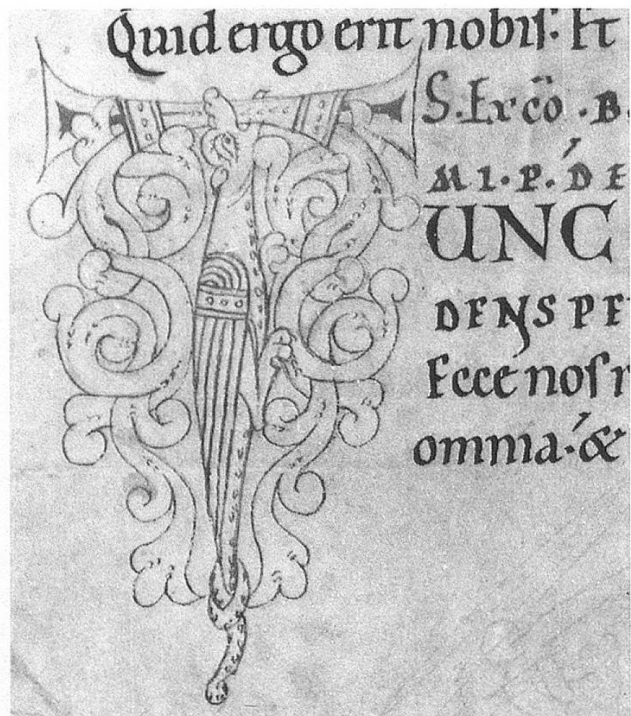 Quid ergo erit nobis. Et
S. Ex cō. B.
MI. P. DE
TUNC
DENS PE
Ecce nos r
omnia. &